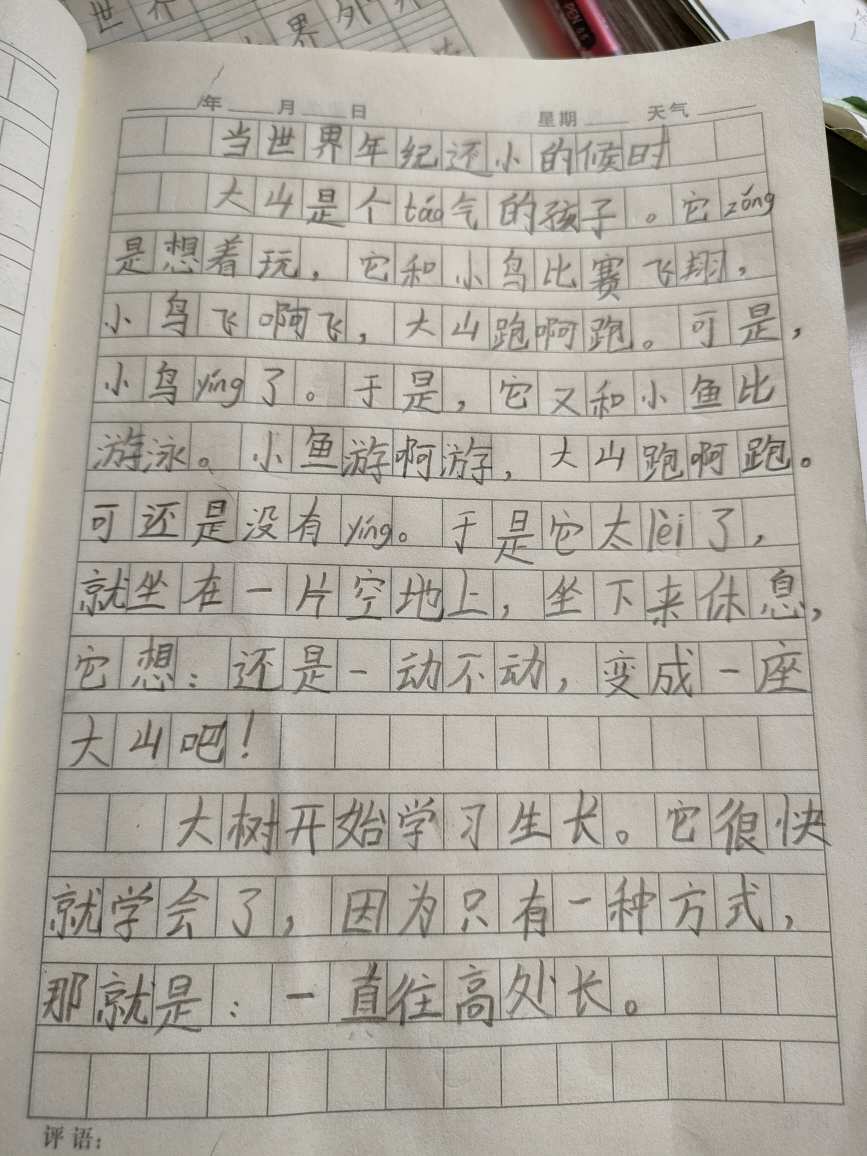 世界
界外
PEN
年 月 日 星期 天气
当世界年纪还小的候时
大山是个táo气的孩子。它zǒng
是想着玩，它和小鸟比赛飞翔，
小鸟飞啊飞，大山跑啊跑。可是，
小鸟yíng了。于是，它又和小鱼比
游泳。小鱼游啊游，大山跑啊跑。
可还是没有yíng。于是它太lèi了，
就坐在一片空地上，坐下来休息，
它想：还是一动不动，变成一座
大山吧！
大树开始学习生长。它很快
就学会了，因为只有一种方式，
那就是：一直往高处长。
评语：